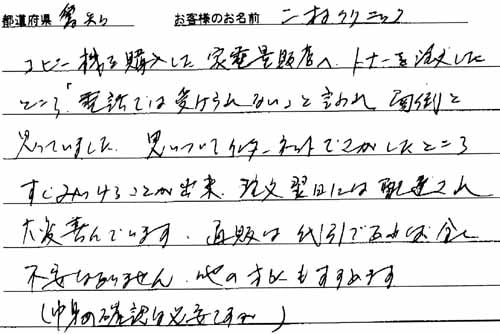 都道府県 愛知 お客様のお名前 二村クリニック
コピー機を購入した家電量販店へ、トナーを注文した
ところ「電話では受けられない」と言われ面倒と
思っていました。思いついてインターネットでさがしたところ
すぐみつけることが出来、注文翌日には配達され
大変喜んでいます。通販は代引であれば全く
不安はありません。他の方にもすすめます
(中身の確認は必要ですが)